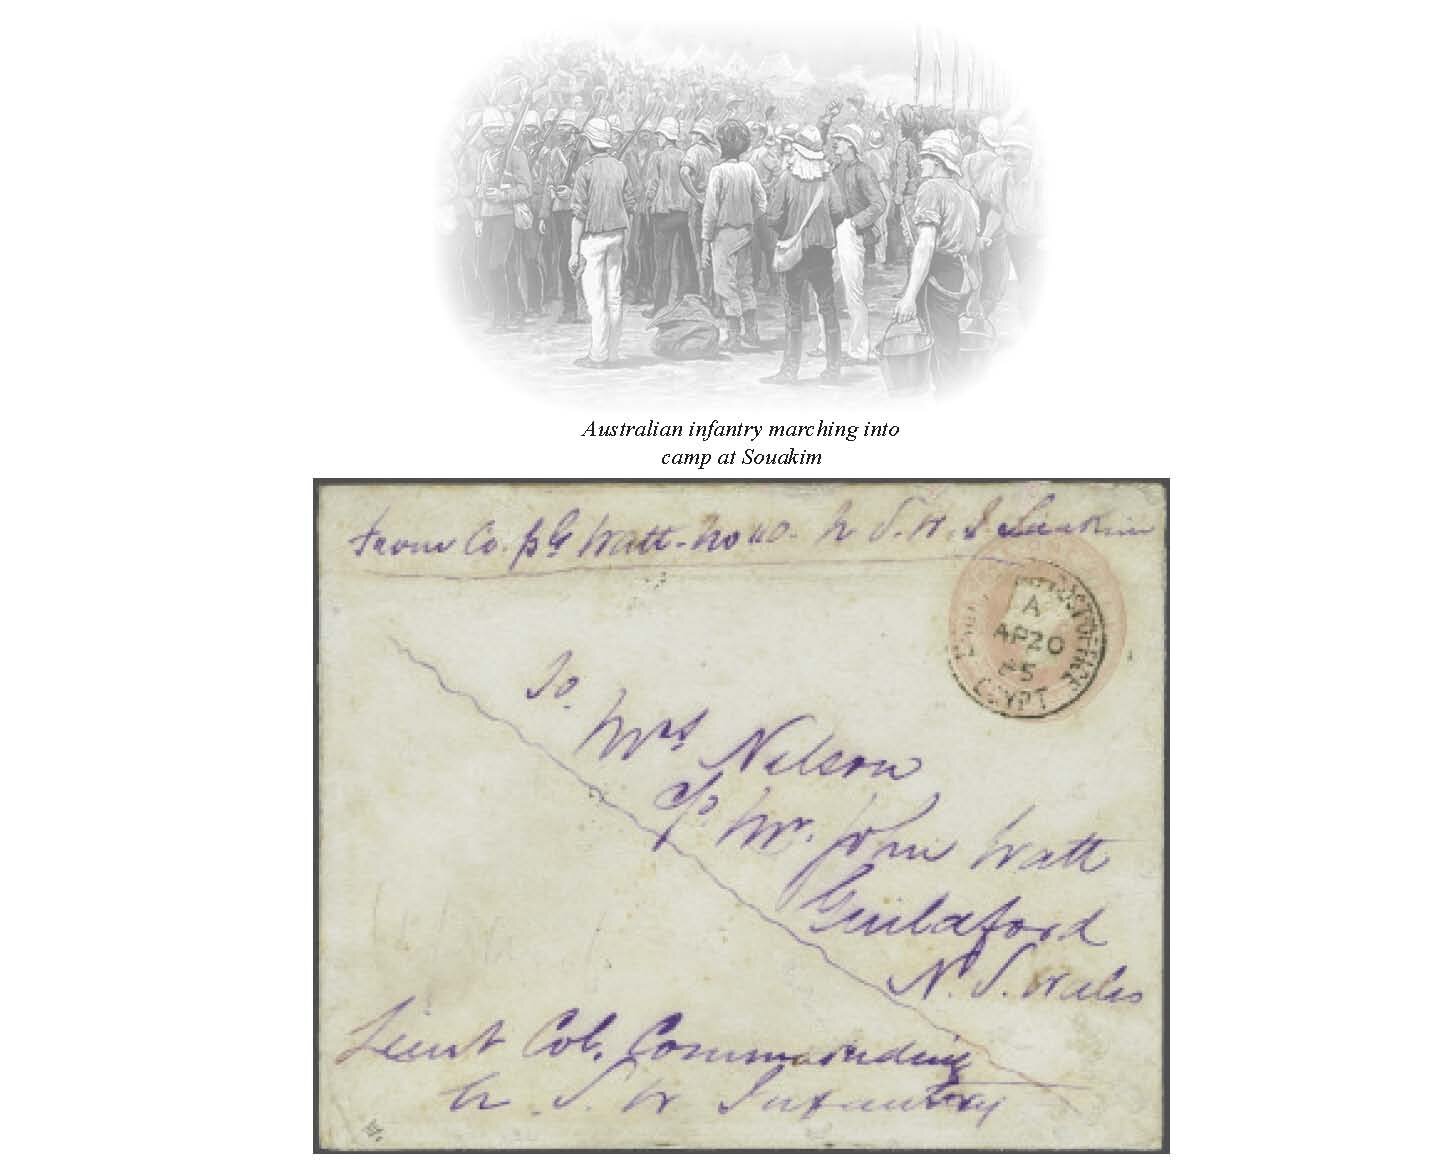 Australian infantry marching into
camp at Souakim
from Co. Watt. No N. S. W. I Suakim
POST OFFICE
A
AP 20
85
EGYPT
To.
Mrs Nelson
c/o. Mr. John Watt
Guildford
N. S. Wales
Lieut Col. Commanding
N. S. W Infantry